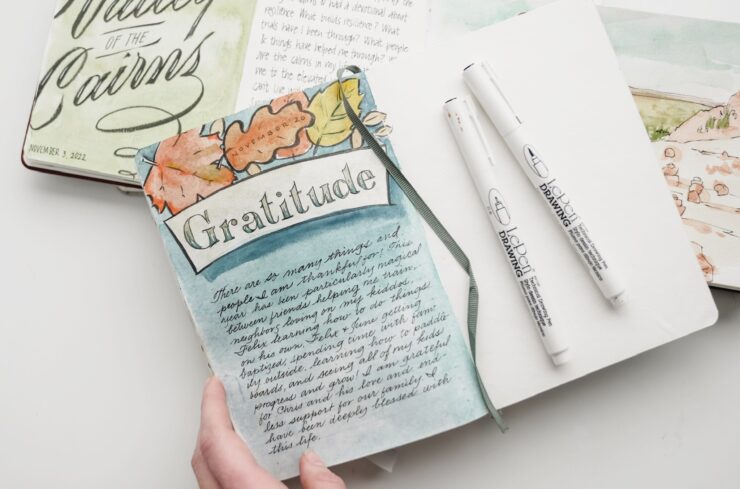 Valley
OF THE
Cairns
NOVEMBER 3, 2022
resilience. What builds resilience? What
trials have I been through? What people
& things have helped me through?
are the cairns in my life
me to the elevated
can't live
NOVEMBER 20
Gratitude
There are so many things and
people I am thankful for! This
year has been particularly magical
between friends helping me train,
neighbors loving on my kiddos,
Felix learning how to do things
on his own, Felix & June getting
baptized, spending time with fam-
ily outside, learning how to paddle
boards, and seeing all of my kids
progress and grow! I am grateful
for Chris and his love and end-
less support for our family. I
have been deeply blessed with
this life.
LePen
DRAWING
LePen
DRAWING